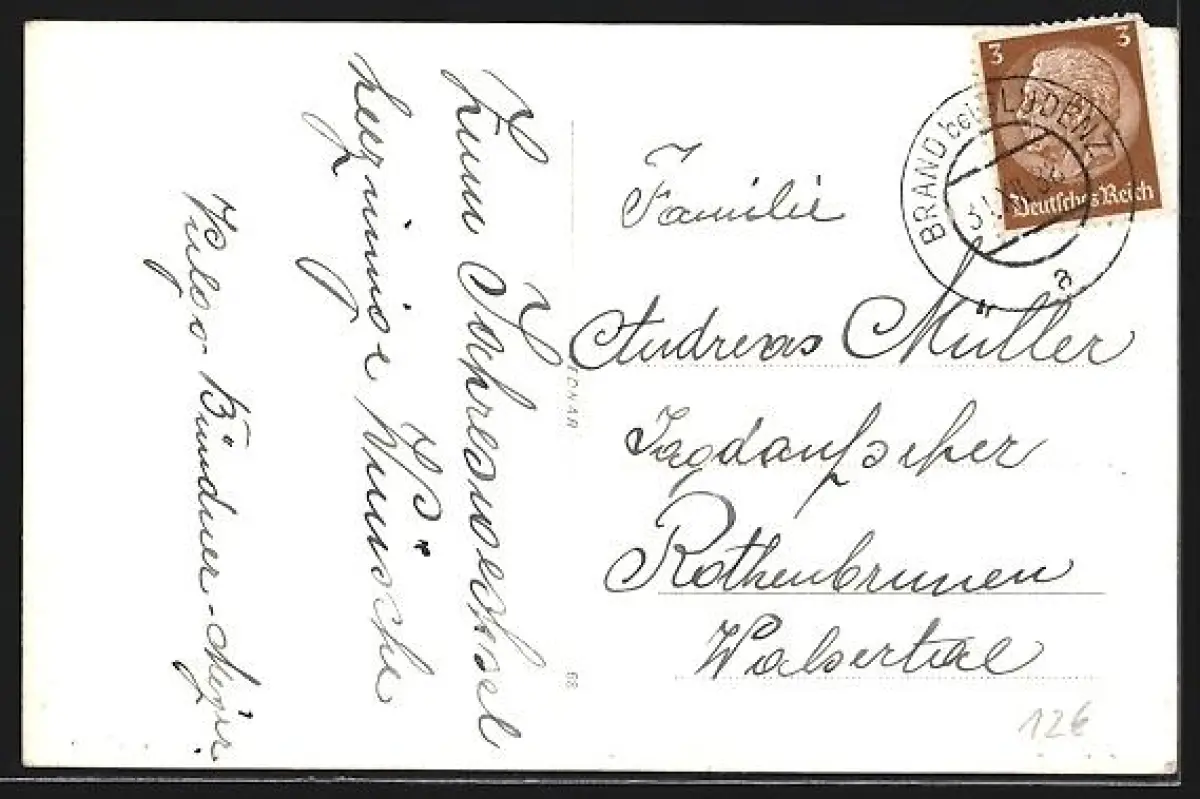 Zum Jahreswechsel
herzinnige Wünsche
Hugo Bündner-
3 3
Deutsches Reich
BRAND bei BLUDENZ
31.XII.
a
Familie
Andreas Müller
Jagdaufseher
Rothenbrunnen
Walsertal
68
12€